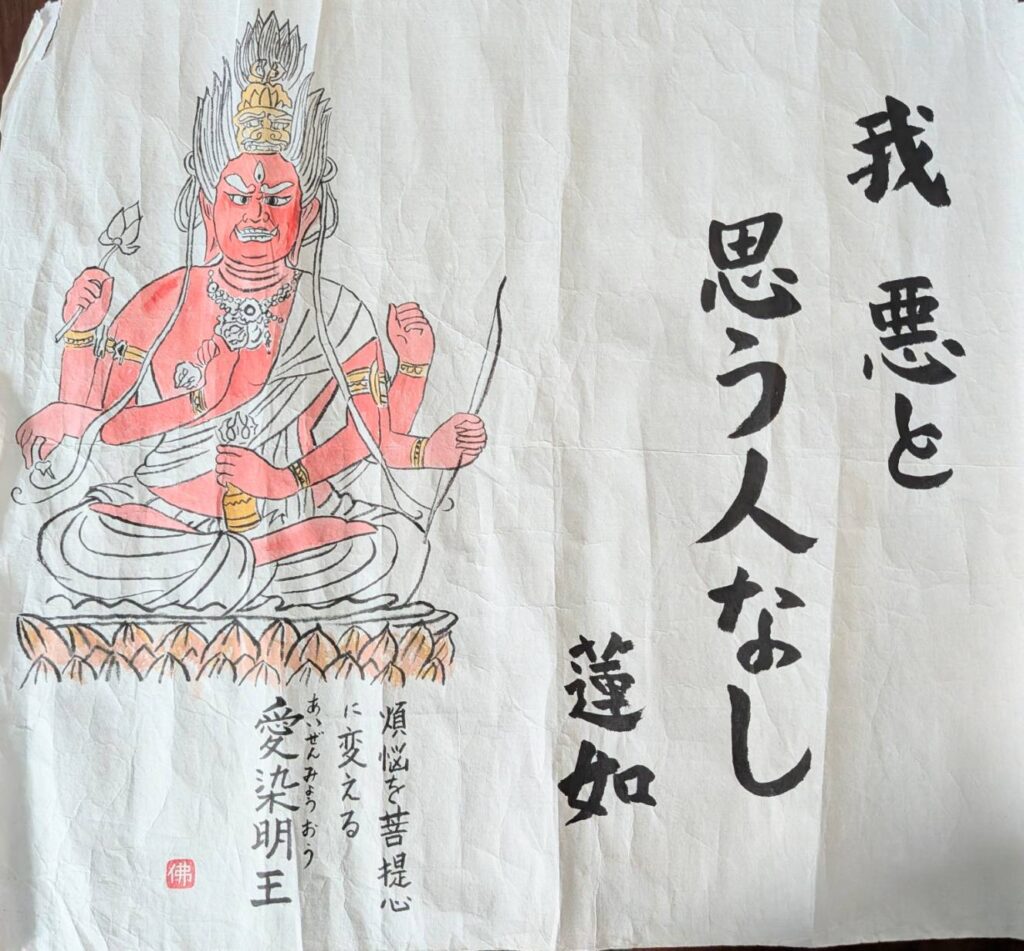 我 悪と
思う人なし
蓮如
煩悩を菩提心
に変える
あいぜんみょうおう
愛染明王
佛